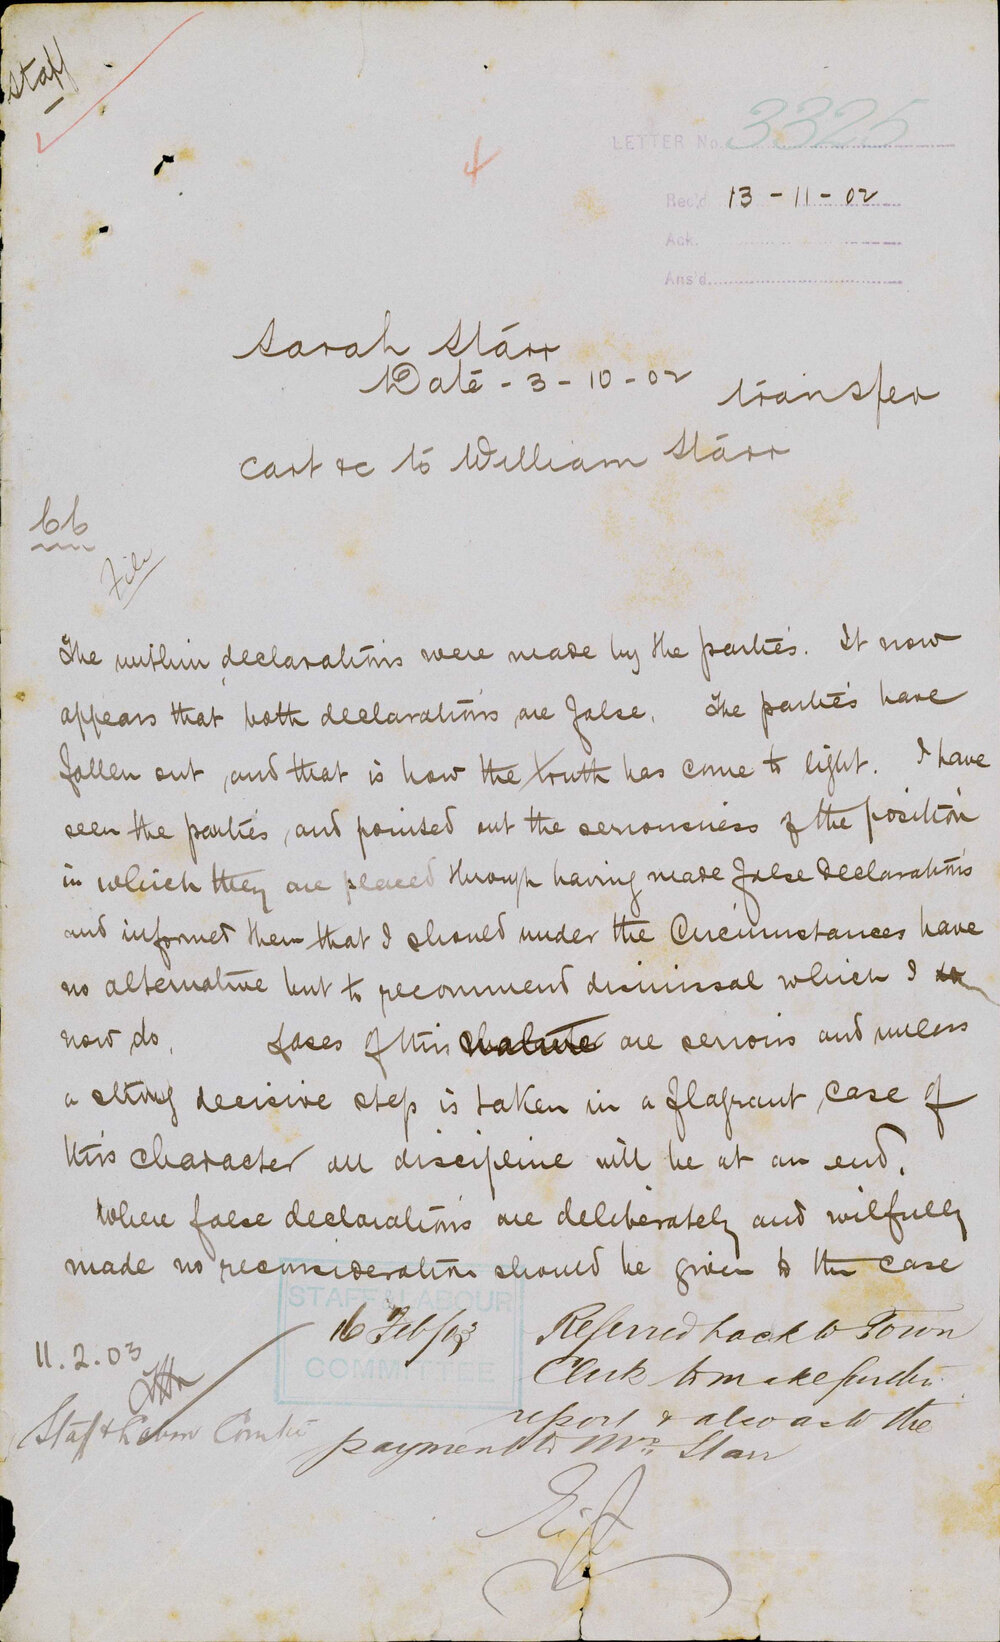 Staff
LETTER No. 3325
4
Rec'd 13-11-02
Ack.
Ans'd
Sarah Starr
Date - 3-10-02
transfer
cart &c to William Starr
File
The within declarations were made by the parties. It now
appears that both declarations are false. The parties have
fallen out, and that is how the truth has come to light. I have
seen the parties, and pointed out the seriousness of the position
in which they are placed through having made false declarations
and informed them that I should under the Circumstances have
no alternative but to recommend dismissal which I
now do. Cases of this nature are serious and unless
a strong decisive step is taken in a flagrant case of
this character all discipline will be at an end.
Where false declarations are deliberately and wilfully
made no reconsideration should be given to the case
STAFF & LABOUR
COMMITTEE
11.2.03
Staff & Labour Comtee
16 Feb/03 Referred back to Town
Clerk to make further
report & also as to the
payment to Mrs Starr